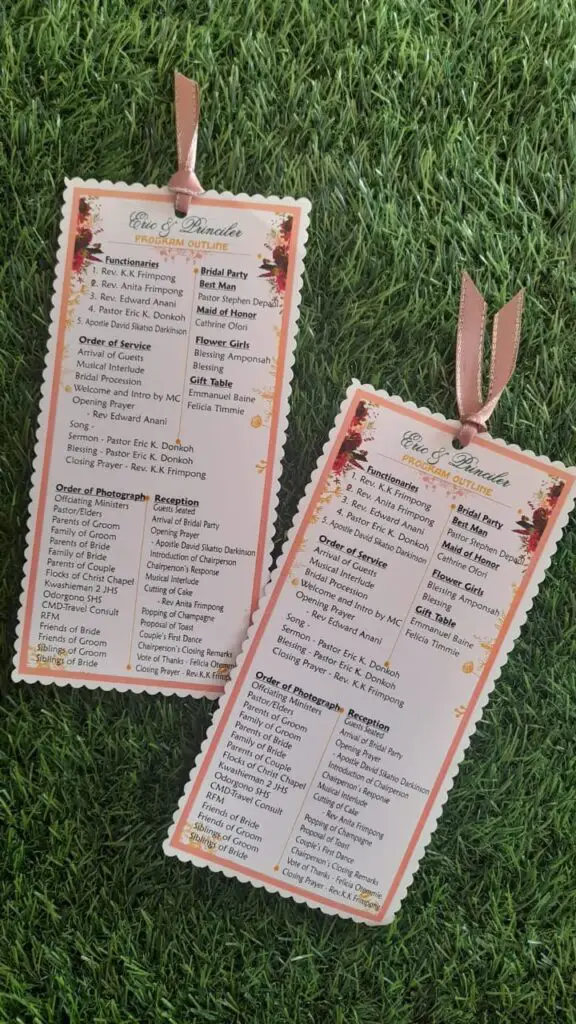 Eric & Princiler
PROGRAM OUTLINE
Functionaries
1. Rev. K.K Frimpong
2. Rev. Anita Frimpong
3. Rev. Edward Anani
4. Pastor Eric K. Donkoh
5. Apostle David Sikatso Darkinson
Order of Service
Arrival of Guests
Musical Interlude
Bridal Procession
Welcome and Intro by MC
Opening Prayer
- Rev Edward Anani
Song -
Sermon - Pastor Eric K. Donkoh
Blessing - Pastor Eric K. Donkoh
Closing Prayer - Rev. K.K Frimpong
Bridal Party
Best Man
Pastor Stephen
Maid of Honor
Cathrine Ofori
Flower Girls
Blessing Amponsah
Blessing
Gift Table
Emmanuel Baine
Felicia Timmie
Order of Photograph
Offciating Ministers
Pastor/Elders
Parents of Groom
Family of Groom
Parents of Bride
Family of Bride
Parents of Couple
Flocks of Christ Chapel
Kwashieman 2 JHS
Odorgono SHS
CMD-Travel Consult
RFM
Friends of Bride
Friends of Groom
Siblings of Groom
Siblings of Bride
Reception
Guests Seated
Arrival of Bridal Party
Opening Prayer
- Apostle David Sikatso Darkinson
Introduction of Chairperson
Chairperson's Response
Musical Interlude
Cutting of Cake
- Rev Anita Frimpong
Popping of Champagne
Proposal of Toast
Couple's First Dance
Chairperson's Closing Remarks
Vote of Thanks - Felicia
Closing Prayer - Rev.K.K Frimpong
Eric & Princiler
PROGRAM OUTLINE
Functionaries
1. Rev. K.K Frimpong
2. Rev. Anita Frimpong
3. Rev. Edward Anani
4. Pastor Eric K. Donkoh
5. Apostle David Sikatso Darkinson
Order of Service
Arrival of Guests
Musical Interlude
Bridal Procession
Welcome and Intro by MC
Opening Prayer
- Rev Edward Anani
Song -
Sermon - Pastor Eric K. Donkoh
Blessing - Pastor Eric K. Donkoh
Closing Prayer - Rev. K.K Frimpong
Bridal Party
Best Man
Pastor Stephen
Maid of Honor
Cathrine Ofori
Flower Girls
Blessing Amponsah
Blessing
Gift Table
Emmanuel Baine
Felicia Timmie
Order of Photograph
Offciating Ministers
Pastor/Elders
Parents of Groom
Family of Groom
Parents of Bride
Family of Bride
Parents of Couple
Flocks of Christ Chapel
Kwashieman 2 JHS
Odorgono SHS
CMD-Travel Consult
RFM
Friends of Bride
Friends of Groom
Siblings of Groom
Siblings of Bride
Reception
Guests Seated
Arrival of Bridal Party
Opening Prayer
- Apostle David Sikatso Darkinson
Introduction of Chairperson
Chairperson's Response
Musical Interlude
Cutting of Cake
- Rev Anita Frimpong
Popping of Champagne
Proposal of Toast
Couple's First Dance
Chairperson's Closing Remarks
Vote of Thanks - Felicia
Closing Prayer - Rev.K.K Frimpong